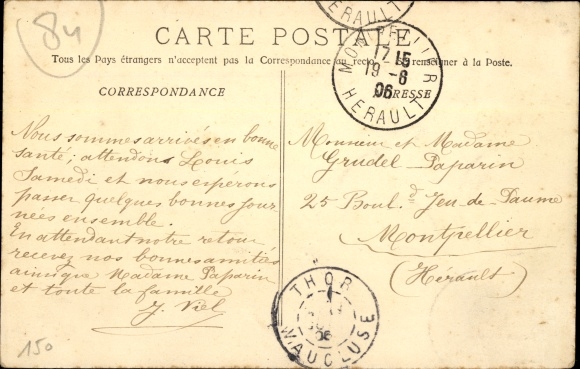 84
HERAULT
CARTE POSTALE
Tous les Pays étrangers n'acceptent pas la Correspondance au recto se renseigner à la Poste.
MONTPELLIER
12 15
19 -6
06
HERAULT
CORRESPONDANCE
ADRESSE
Nous sommes arrivés en bonne
santé; attendons Louis
Samedi et nous espérons
passer quelques bonnes jour
nées ensemble.
En attendant notre retour
recevez nos bonnes amitiés
ainsi que Madame Paparin
et toute la famille
J. Viel
Monsieur et Madame
Grudel-Paparin
25 Boul.d Jeu-de-Paume
Montpellier
(Hérault)
THOR
06
VAUCLUSE
150